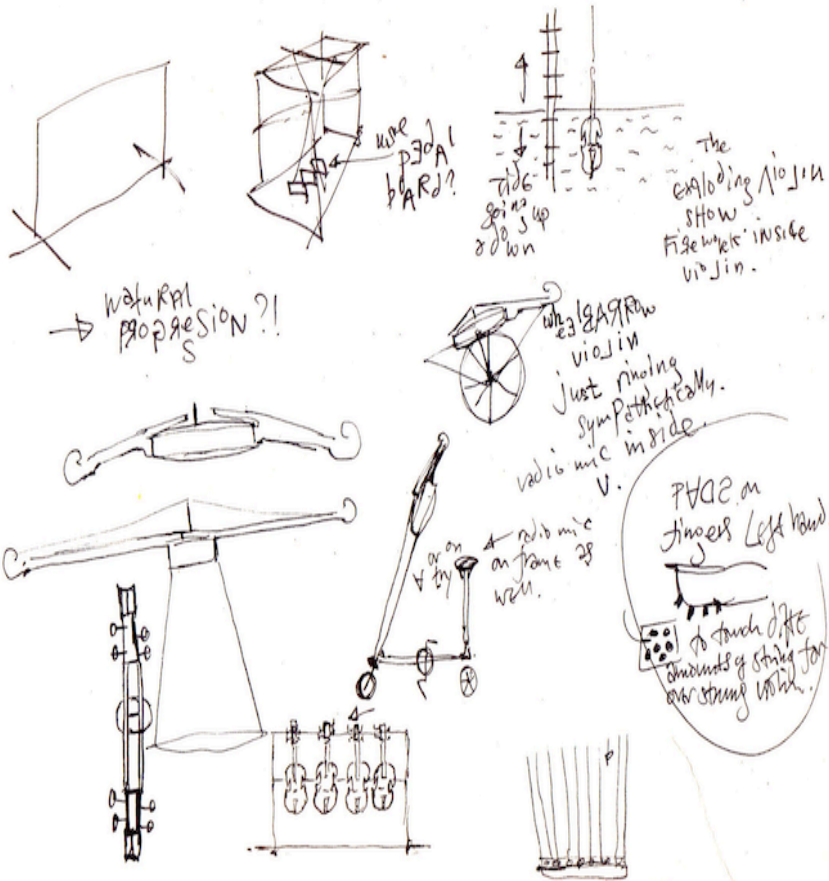 more
pedal
board?
Tide
going
up
down
The
exploding violin
show
Firework inside
violin.
→ natural
progresion?!
s
wheelbarrow
violin
just ringing
sympathetically.
radio mic inside
v.
or on
try
radio mic
on frame as
well.
PADS on
fingers Left hand
to touch
amounts of string for
over strung violin.
P